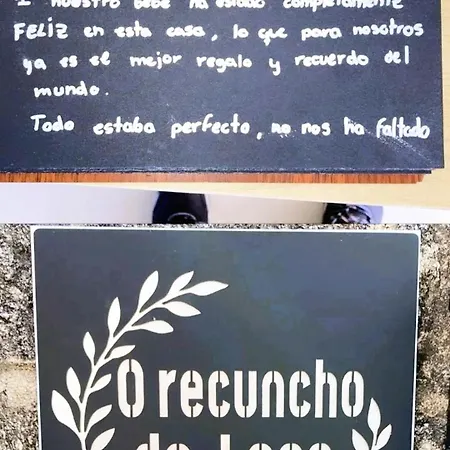 nuestro bebé ha estado completamente
FELIZ en esta casa, lo que para nosotros
ya es el mejor regalo y recuerdo del
mundo.
Todo estaba perfecto, no nos ha faltado
O recuncho
de